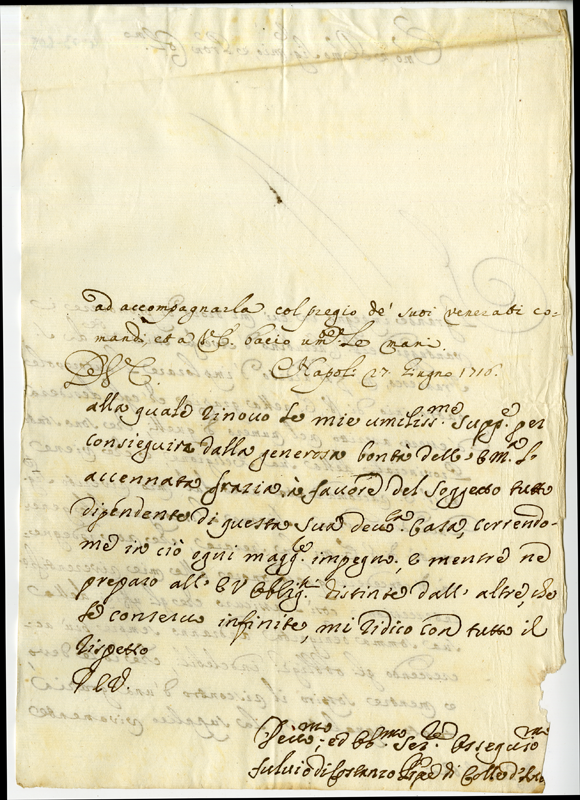 ad accompagnarla col pregio de' suoi venerati co-
mandi, et a V.E. bacio um.te le mani.
Di V.E. Napoli 27 Giugno 1716.
alla quale rinovo le mie umiliss.me supp.e per
conseguire dalla generosa bontà dell' E.V. la
accennata grazia à favore del soggetto tutto
dipendente di questa sua devo.ma Casa, correndo-
mi in ciò ogni magg.r impegno, e mentre ne
preparo all' E.V. obblig.ni distinte dall' altre, che
le conservo infinite, mi ridico con tutto il
rispetto
Di V.E.
Devo.mo, ed Obb.mo Ser.re Ossequios.mo
Fulvio di Costanzo Pn͠pe di Colle d'